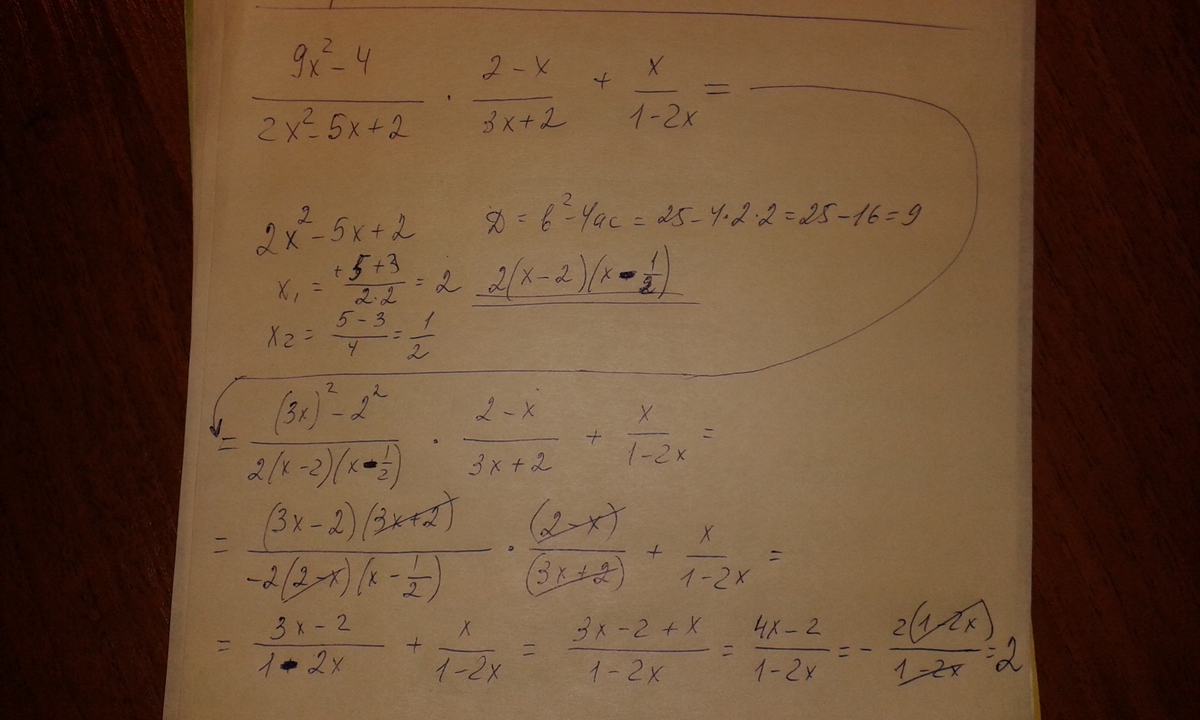 (9x² - 4)/(2x² - 5x + 2) · (2 - x)/(3x + 2) + x/(1 - 2x) =
2x² - 5x + 2
D = b² - 4ac = 25 - 4·2·2 = 25 - 16 = 9
x₁ = (+5 + 3)/(2·2) = 2
2(x - 2)(x - 1/2)
x₂ = (5 - 3)/4 = 1/2
= ((3x)² - 2²)/(2(x - 2)(x - 1/2)) · (2 - x)/(3x + 2) + x/(1 - 2x) =
= ((3x - 2)(3x + 2))/(-2(2 - x)(x - 1/2)) · (2 - x)/(3x + 2) + x/(1 - 2x) =
= (3x - 2)/(1 - 2x) + x/(1 - 2x) = (3x - 2 + x)/(1 - 2x) = (4x - 2)/(1 - 2x) = - 2(1 - 2x)/(1 - 2x) = 2